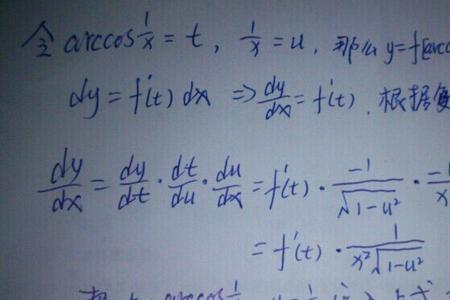 令 arccos 1/x = t, 1/x = u, 那么 y = f(arcc
dy = f'(t) dx ⇒ dy/dx = f'(t). 根据复
dy/dx = dy/dt · dt/du · du/dx = f'(t) · -1/√(1-u²) · -1/x
= f'(t) · 1/(x²√(1-u²))